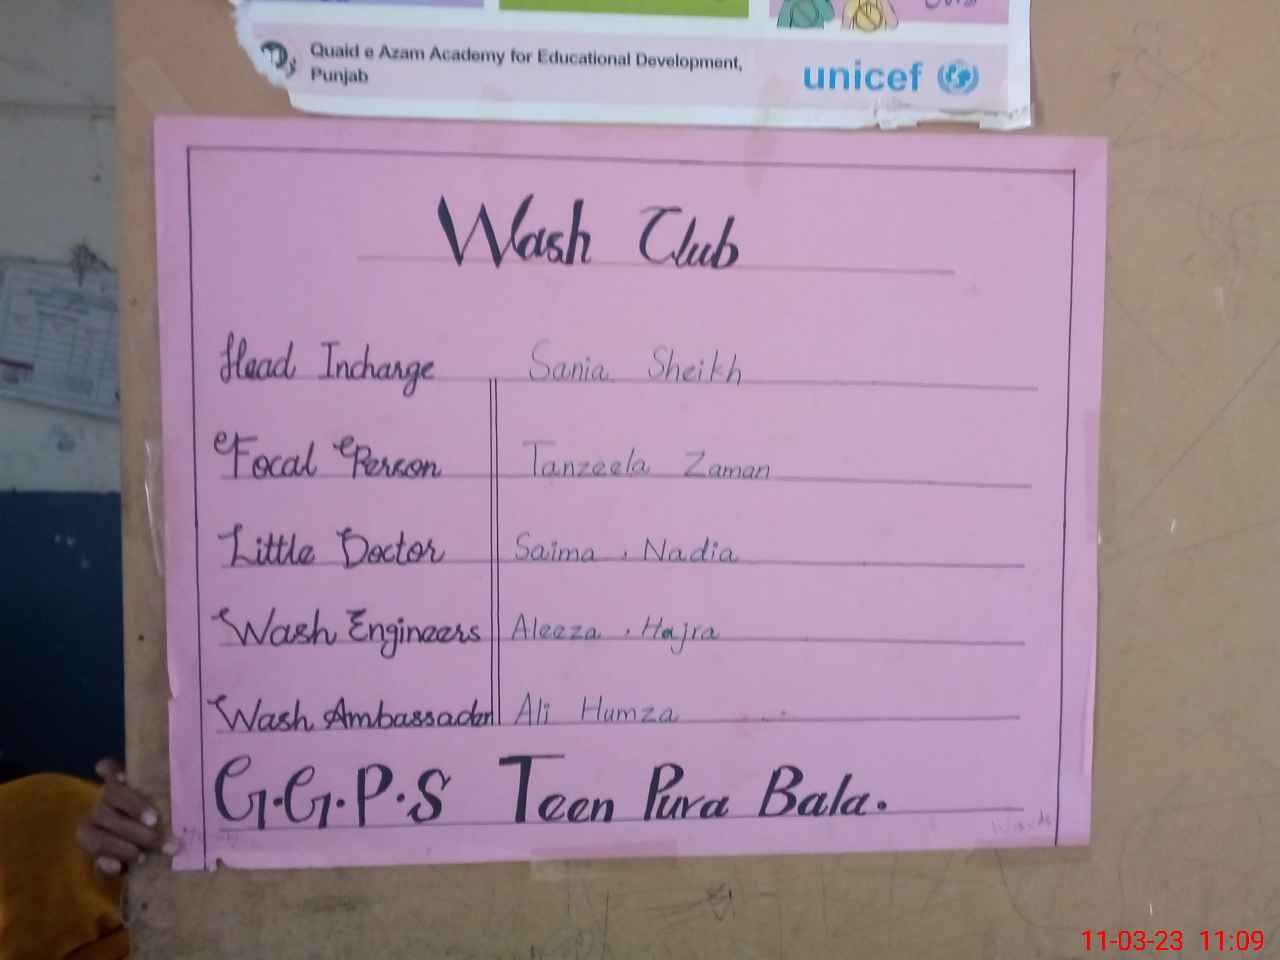 Quaid e Azam Academy for Educational Development,
Punjab
unicef
Wash Club
Head Incharge Sania Sheikh
Focal Person Tanzeela Zaman
Little Doctor Saima , Nadia
Wash Engineers Aleeza , Hajra
Wash Ambassador Ali Humza
G.G.P.S Teen Pura Bala.
11-03-23 11:09